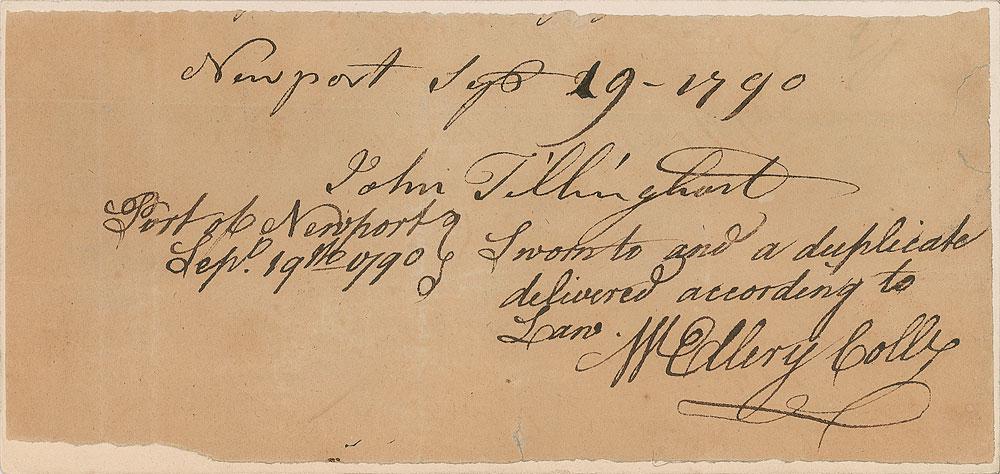 Newport Sep 19 - 1790
John Tillinghast
Port of Newport
Sepr. 19th 1790
Sworn to and a duplicate
delivered according to
Law.
W Ellery Collr